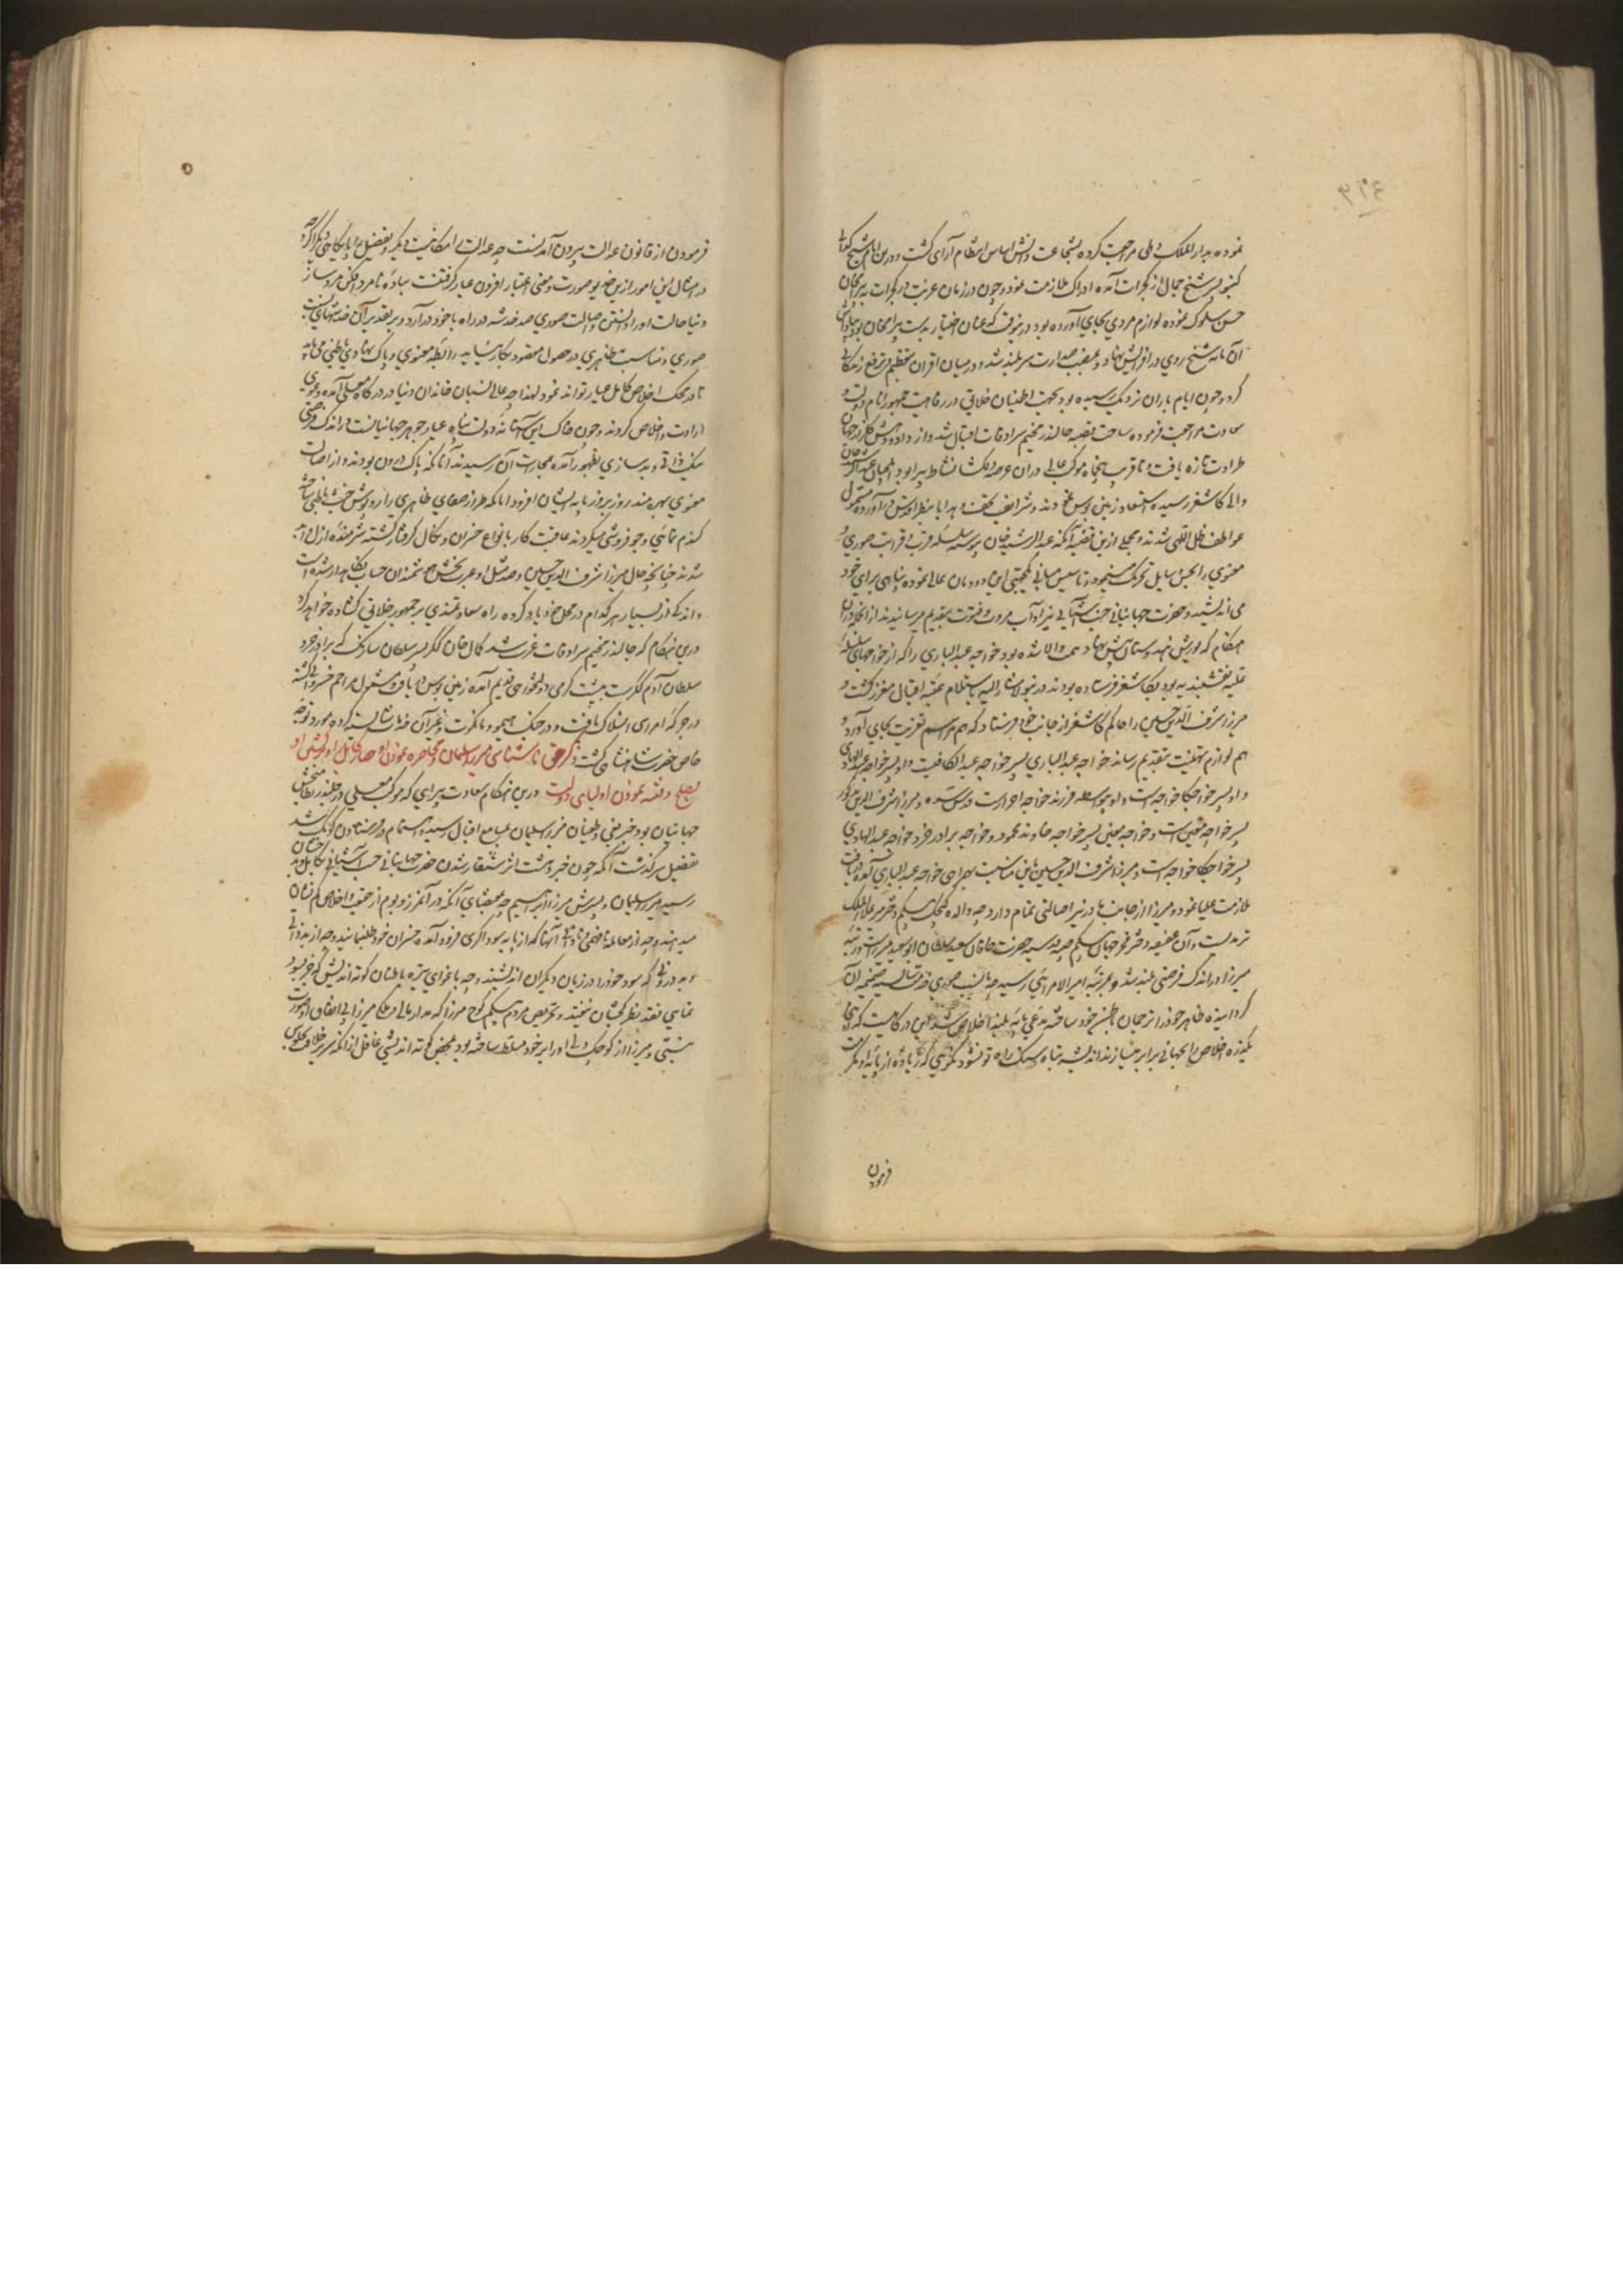 نموده بدار الملک دهلی مراجعت کرده بشجاعت دانش اساس انتظام آرای گشت و درین ایام شیخ گدائی
کنبو پسر شیخ جمال از گجرات آمده ادراک ملازمت نمود و چون در زمان غربت در گجرات به بیرام خان
حسن سلوک نموده لوازم مردمی بجای آورده بود درینوقت که عنان اختیار بدست بیرام خان بود بپاداش
آن مانه شیخ روی در افزایش نهاد و بمنصب صدارت سربلند شد و در میان اقران بتعظیم و ترفع زندگانی
کرد و چون ایام باران نزدیک رسیده بود بجهت اطمینان خلایق در رفاهیت جمهور انام دولت و
سعادت مراجعت فرموده ساحت قصبه جالندر مخیم سرادقات اقبال شد و از داد و دهش گلزار جهان
طراوت تازه یافت و تا قریب پنجاه موکب عالی دران عرصه دلکشا نشاط پیرا بود ایلچیان عبدالرشید خان
والی کاشغر رسیده استسعاد زمین بوس نمودند و شرایف تحف و هدایا بنظر اقدس درآورده مشمول
عواطف ظل اللهی شدند و مجملی ازین قضیه آنکه عبدالرشید خان پیوسته سلسله قرب و قرابت صوری و
معنوی را بحسن وسایل تحریک مینمود و تاسیس مبانی یکجهتی این دودمان عالی نموده پناهی برای خود
می اندیشید و حضرت جهانبانی جنت آشیانی نیز آداب مروت و فتوت بتقدیم میرسانیدند از انجمله دران
هنگام که یورش هندوستان پیش نهاد همت والا شده بود خواجه عبدالباری را که از خواجهای سلسله
علیه نقشبندیه بود بکاشغر فرستاده بودند درینولا مشارالیه باستلام عتبه اقبال معزز گشت و
میرزا شرف الدین حسین را حاکم کاشغر از جانب خود فرستاد که هم مراسم تعزیت بجای آورد و
هم لوازم تهنیت بتقدیم رساند خواجه عبدالباری پسر خواجه عبدالکافیست و او پسر خواجه عبدالهادی
و او پسر خواجکا خواجه است و او بواسطه فرزند خواجه احرارست قدس سره و میرزا شرف الدین مذکور
پسر خواجه معین است و خواجه معین پسر خواجه خاوند محمود و خواجه برادر خرد خواجه عبدالهادی
پسر خواجکا خواجه است و میرزا شرف الدین حسین باین مناسبت بهمراهی خواجه عبدالباری آمده دریافت
ملازمت علیا نمود و میرزا از جانب مادر نیز اصالتی تمام دارد چه والده کیچک بیگم دختر میر علاءالملک
ترمدیست و آن عفیفه دختر فخر جهان بیگم صبیه قدسیه حضرت خاقان سعید سلطان ابوسعید میرزاست و رتبه
میرزا در اندک فرصتی بلند شد و بمرتبه امیر الامرائی رسید چه بانتسب صوری خدمت شایسته ضمیمه آن
گردانیده ظاهر خود را ترجمان باطن خود ساخته مدعی پایه بلند اخلاص شد این درگاهیست که اینجا
یکذره اخلاص را بجهانی برابر میسازند اندیشه تباه سنگ راه تو نشود نگوئی که زیاده از پایه او مکرمت
فرمودن
فرمودن از قانون عدالت بیرون آمدنست چه عدالت امکانیت دیگر و بفضل پایگاهی دیگر اگرچه
در امثال این امور ازین خدیو صورت و معنی اعتبار افزون عیار گرفتنست بباده نامرد افکن مرد ساز
دنیا حالت او را دانستن و اصالت صوری صد خدشه در راه با خود دارد و بر تقدیر آن خدشهای نسبت
صوری و مناسبت ظاهری در حصول مقصود بکار نیاید رابطه معنوی و پاک نهادی باطنی می باید
تا در محک اخلاص کامل عیار تواند نمود لهذا چه عالی نسبان خاندان دنیا در درگاه معلی آمده دعوی
ارادت و اخلاص کردند و چون خاک این آستانه دولت پناه عیار جوهر جهانیانست در اندک فرصتی
نیک ذاتی و بد سازی بظهور آمده بمجازات آن رسیدند آنانکه پاک درون بودند و از اصالت
معنوی بهره مند روز بروز پایه ایشان افزود و آنانکه طراز صفای ظاهری را روپوش خبث باطنی ساخته
گندم نمائی و جو فروشی میکردند عاقبت کار بانواع خسران و نکال گرفتار گشته شرمنده ازل و ابد
شدند چنانچه حال میرزا شرف الدین حسین و صد مثل او عبرت بخش هوشمندان حساب نگاهدار شده است
و اندکی از بسیار هر کدام در محل خود یاد کرده راه سعادتمندی بر جمهور خلایق گشاده خواهد کرد
درین هنگام که جالندر مخیم سرادقات عزت شد کمال خان گکر پسر سلطان سارنگ که برادر خرد
سلطان آدم گکرست به پشت گرمی دولتخواهی قدیم آمده زمین بوس دریافت و مشمول مراحم خسروانی گشته
در جرگه امرای انسلاک یافت و در جنگ هیمو و مانکوت و غیر آن خدمات شایسته کرده مورد توجه
خاص حضرت شاهنشاهی گشت ذکر حق ناشناسی میرزا سلیمان و محاصره نمودن او حصار کابل و برگشتن او
بصلح و فتنه نمودن اولیای دولت درین هنگام سعادت پیرای که موکب معلی در جلندر نظام بخش
جهانیان بود خبر بغی و طغیان میرزا سلیمان بمسامع اقبال رسید و اهتمام در فرستادن کومک شد
تفصیل سرگذشت آنکه چون خبر وحشت اثر شنقار شدن حضرت جهانبانی جنت آشیانی بکابل و بدخشان
رسید میرزا سلیمان و پسرش میرزا ابراهیم چه بمقتضای آنکه در آن مرز و بوم از حقوق و اخلاص کم نشان
میدهند و چه از معامله نافهمی و نادانی آنها که از پایه سوداگری فرود آمده خسران خود طلبانند و چه از بد ذاتی
و بد درونی که سود خود را در زیان دیگران اندیشند و چه باغوای تیره باطنان کوته اندیش که خبر بسود
نمائی نقد نظر کنان نیفتد و بتحریص مردم بیگم کوچ میرزا که مدار مالی و ملکی میرزا بی اتفاق او صورت
نبستی و میرزا از کوچک دلی او را بر خود مسلط ساخته بود بمحض کوته اندیشی غافل از آنکه سریر خلافت بجلوس